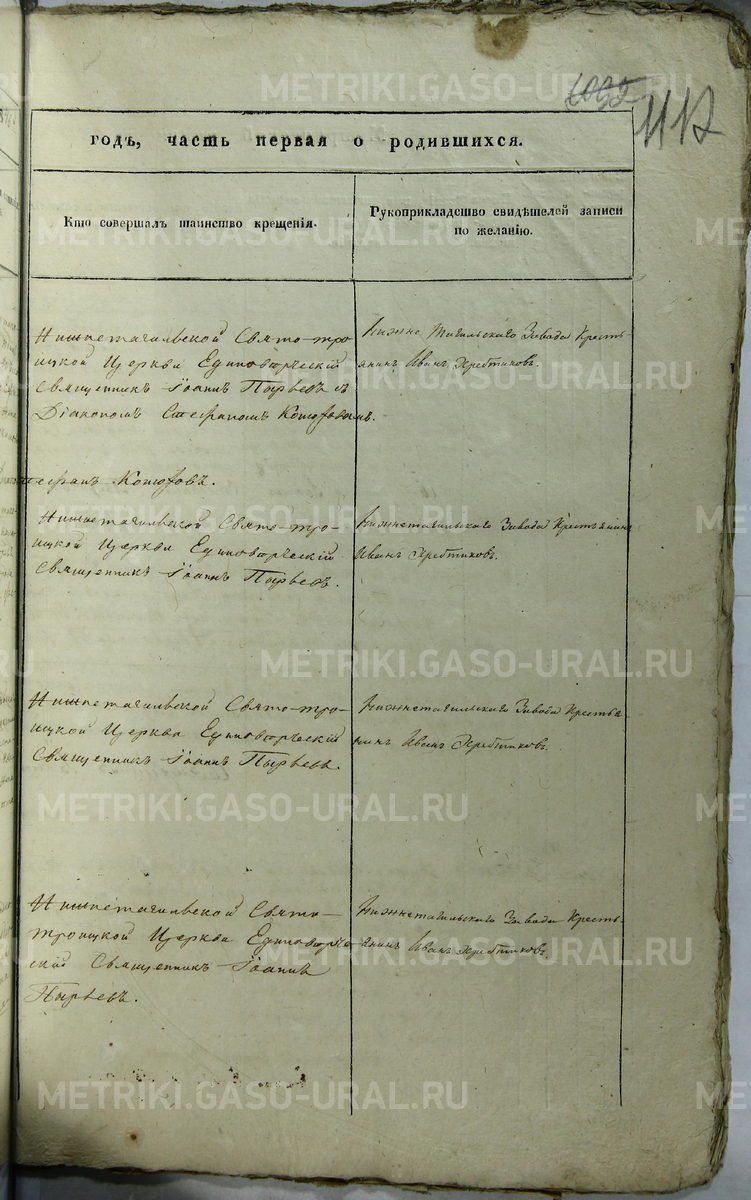 1032
1117
годъ, часть первая о родившихся.
Кто совершалъ таинство крещенія.
Рукоприкладство свидѣтелей записи
по желанію.
Нижнетагильской Свято-тро-
ицкой Церкви Единовѣрческій
Священникъ Іоаннъ Пырьевъ съ
Діакономъ Стефаномъ Кокшаровымъ.
Нижне Тагильскаго Завода Кресть-
янинъ Иванъ Хребтиковъ.
Нижнетагильской Свято-тро-
ицкой Церкви Единовѣрческій
Священникъ Іоаннъ Пырьевъ.
Нижнетагильскаго Завода Крестьянинъ
Иванъ Хребтиковъ.
Нижнетагильской Свято-тро-
ицкой Церкви Единовѣрческій
Священникъ Іоаннъ Пырьевъ.
Нижнетагильскаго Завода Крестья-
нинъ Иванъ Хребтиковъ.
Нижнетагильской Свято-
троицкой Церкви Единовѣрче-
скій Священникъ Іоаннъ
Пырьевъ.
Нижнетагильскаго Завода Кресть-
янинъ Иванъ Хребтиковъ.
METRIKI.GASO-URAL.RU